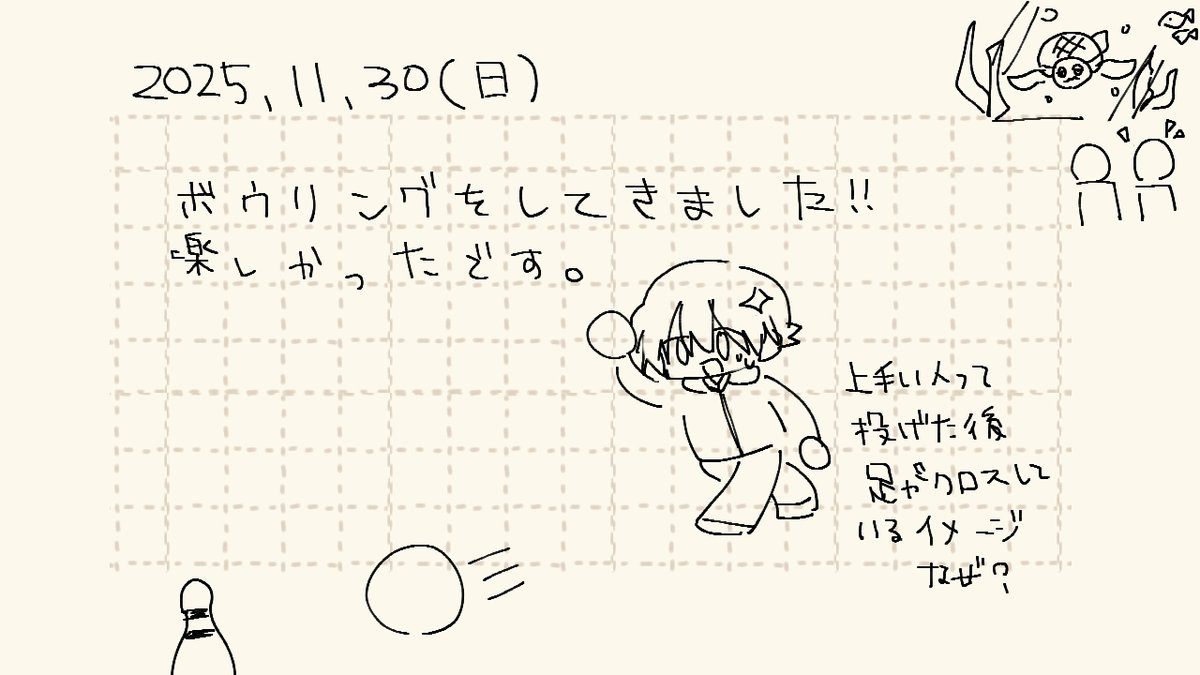 2025,11,30(日)
ボウリングをしてきました!!
楽しかったです。
上手い人って
投げた後
足がクロスして
いるイメージ
なぜ?